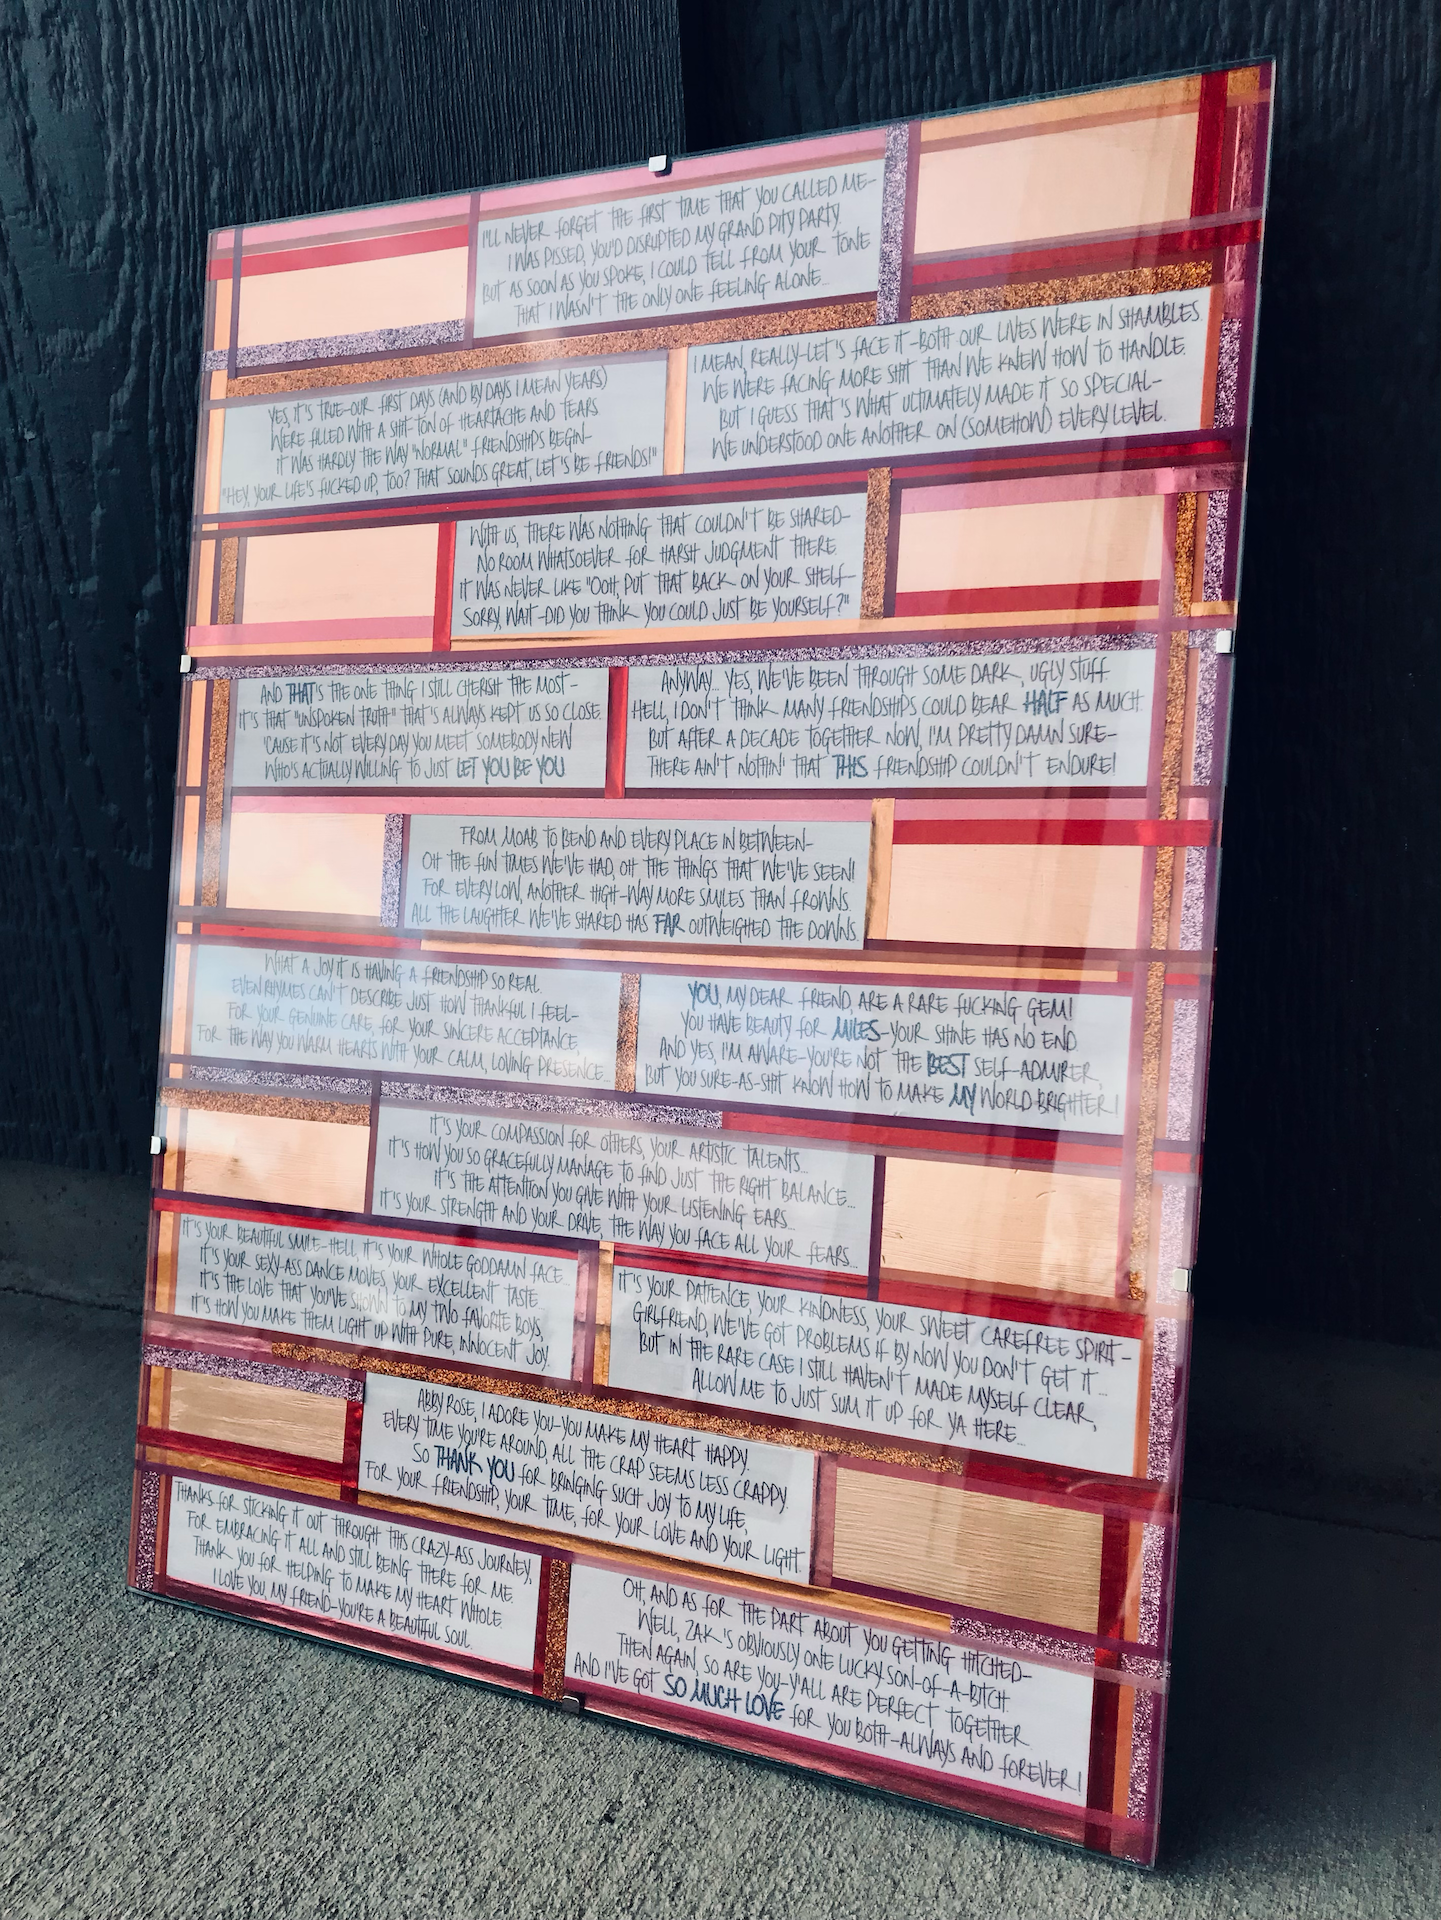 I'LL NEVER FORGET THE FIRST TIME THAT YOU CALLED ME–
I WAS PISSED, YOU'D DISRUPTED MY GRAND PITY PARTY.
BUT AS SOON AS YOU SPOKE, I COULD TELL FROM YOUR TONE
THAT I WASN'T THE ONLY ONE FEELING ALONE...
YES, IT'S TRUE–OUR FIRST DAYS (AND BY DAYS I MEAN YEARS)
WERE FILLED WITH A SHIT-TON OF HEARTACHE AND TEARS
IT WAS HARDLY THE WAY "NORMAL" FRIENDSHIPS BEGIN–
"HEY, YOUR LIFE'S FUCKED UP, TOO? THAT SOUNDS GREAT, LET'S BE FRIENDS!"
I MEAN, REALLY–LET'S FACE IT–BOTH OUR LIVES WERE IN SHAMBLES
WE WERE FACING MORE SHIT THAN WE KNEW HOW TO HANDLE.
BUT I GUESS THAT'S WHAT ULTIMATELY MADE IT SO SPECIAL–
WE UNDERSTOOD ONE ANOTHER ON (SOMEHOW) EVERY LEVEL.
WITH US, THERE WAS NOTHING THAT COULDN'T BE SHARED–
NO ROOM WHATSOEVER FOR HARSH JUDGMENT THERE.
IT WAS NEVER LIKE "OOH, PUT THAT BACK ON YOUR SHELF–
SORRY, WAIT–DID YOU THINK YOU COULD JUST BE YOURSELF?"
AND THAT'S THE ONE THING I STILL CHERISH THE MOST–
IT'S THAT "UNSPOKEN TRUTH" THAT'S ALWAYS KEPT US SO CLOSE.
'CAUSE IT'S NOT EVERY DAY YOU MEET SOMEBODY NEW
WHO'S ACTUALLY WILLING TO JUST LET YOU BE YOU
ANYWAY... YES, WE'VE BEEN THROUGH SOME DARK, UGLY STUFF
HELL, I DON'T THINK MANY FRIENDSHIPS COULD BEAR HALF AS MUCH.
BUT AFTER A DECADE TOGETHER NOW, I'M PRETTY DAMN SURE–
THERE AIN'T NOTHIN' THAT THIS FRIENDSHIP COULDN'T ENDURE!
FROM MOAB TO BEND AND EVERY PLACE IN BETWEEN–
OH THE FUN TIMES WE'VE HAD, OH THE THINGS THAT WE'VE SEEN!
FOR EVERY LOW, ANOTHER HIGH–WAY MORE SMILES THAN FROWNS.
ALL THE LAUGHTER WE'VE SHARED HAS FAR OUTWEIGHED THE DOWNS.
WHAT A JOY IT IS HAVING A FRIENDSHIP SO REAL.
EVEN RHYMES CAN'T DESCRIBE JUST HOW THANKFUL I FEEL–
FOR YOUR GENUINE CARE, FOR YOUR SINCERE ACCEPTANCE,
FOR THE WAY YOU WARM HEARTS WITH YOUR CALM, LOVING PRESENCE...
YOU, MY DEAR FRIEND, ARE A RARE FUCKING GEM!
YOU HAVE BEAUTY FOR MILES–YOUR SHINE HAS NO END.
AND YES, I'M AWARE–YOU'RE NOT THE BEST SELF-ADMIRER,
BUT YOU SURE-AS-SHIT KNOW HOW TO MAKE MY WORLD BRIGHTER!
IT'S YOUR COMPASSION FOR OTHERS, YOUR ARTISTIC TALENTS...
IT'S HOW YOU SO GRACEFULLY MANAGE TO FIND JUST THE RIGHT BALANCE...
IT'S THE ATTENTION YOU GIVE WITH YOUR LISTENING EARS...
IT'S YOUR STRENGTH AND YOUR DRIVE, THE WAY YOU FACE ALL YOUR FEARS...
IT'S YOUR BEAUTIFUL SMILE–HELL, IT'S YOUR WHOLE GODDAMN FACE...
IT'S YOUR SEXY-ASS DANCE MOVES, YOUR EXCELLENT TASTE...
IT'S THE LOVE THAT YOU'VE SHOWN TO MY TWO FAVORITE BOYS,
IT'S HOW YOU MAKE THEM LIGHT UP WITH PURE, INNOCENT JOY.
IT'S YOUR PATIENCE, YOUR KINDNESS, YOUR SWEET CAREFREE SPIRIT–
GIRLFRIEND, WE'VE GOT PROBLEMS IF BY NOW YOU DON'T GET IT...
BUT IN THE RARE CASE I STILL HAVEN'T MADE MYSELF CLEAR,
ALLOW ME TO JUST SUM IT UP FOR YA HERE...
ABBY ROSE, I ADORE YOU–YOU MAKE MY HEART HAPPY.
EVERY TIME YOU'RE AROUND, ALL THE CRAP SEEMS LESS CRAPPY.
SO THANK YOU FOR BRINGING SUCH JOY TO MY LIFE,
FOR YOUR FRIENDSHIP, YOUR TIME, FOR YOUR LOVE AND YOUR LIGHT.
THANKS FOR STICKING IT OUT THROUGH THIS CRAZY-ASS JOURNEY,
FOR EMBRACING IT ALL AND STILL BEING THERE FOR ME.
THANK YOU FOR HELPING TO MAKE MY HEART WHOLE.
I LOVE YOU, MY FRIEND–YOU'RE A BEAUTIFUL SOUL.
OH, AND AS FOR THE PART ABOUT YOU GETTING HITCHED–
WELL, ZAK'S OBVIOUSLY ONE LUCKY SON-OF-A-BITCH.
THEN AGAIN, SO ARE YOU–Y'ALL ARE PERFECT TOGETHER
AND I'VE GOT SO MUCH LOVE FOR YOU BOTH–ALWAYS AND FOREVER!